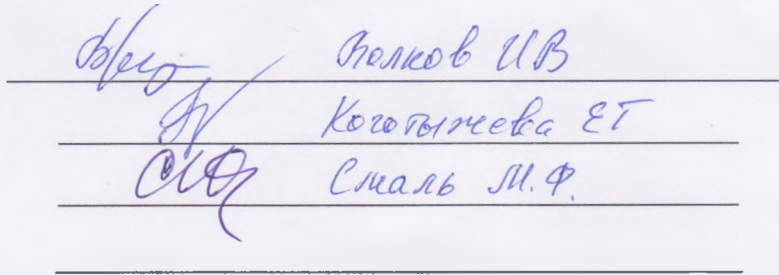 Волков ИВ
Коготыжева ЕГ
Смаль М.Ф.